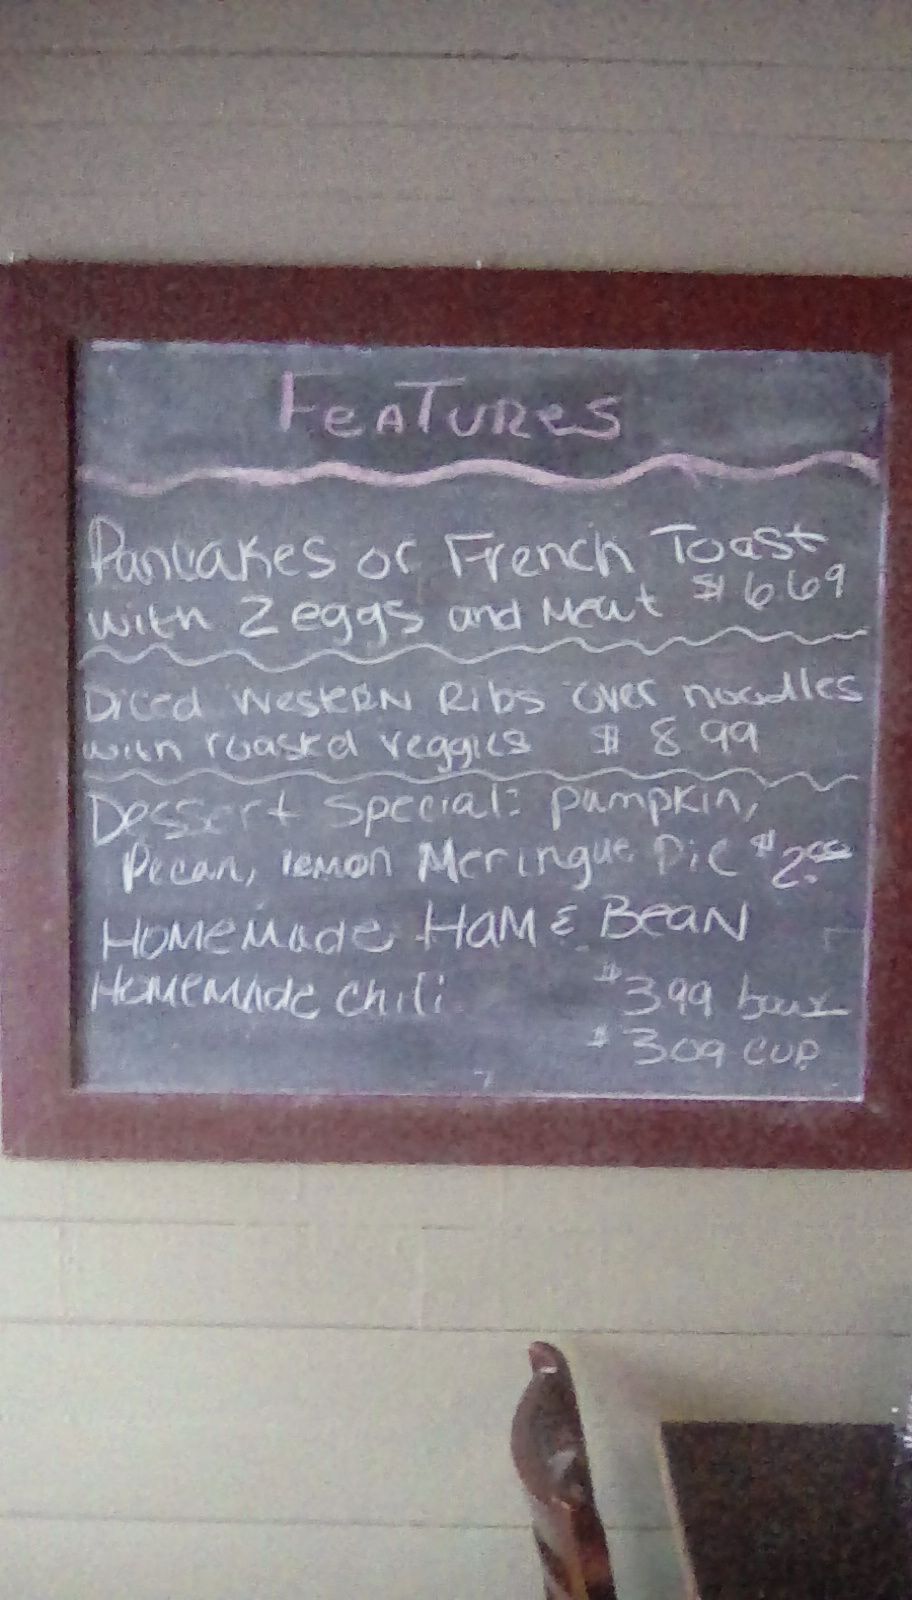 Features
Pancakes or French Toast
with 2 eggs and Meat $6.69
Diced Western Ribs over noodles
with roasted veggies $8.99
Dessert Special: pumpkin,
Pecan, lemon Meringue Pie $2.00
Homemade Ham & Bean
Homemade chili $3.99 bowl
$3.09 cup